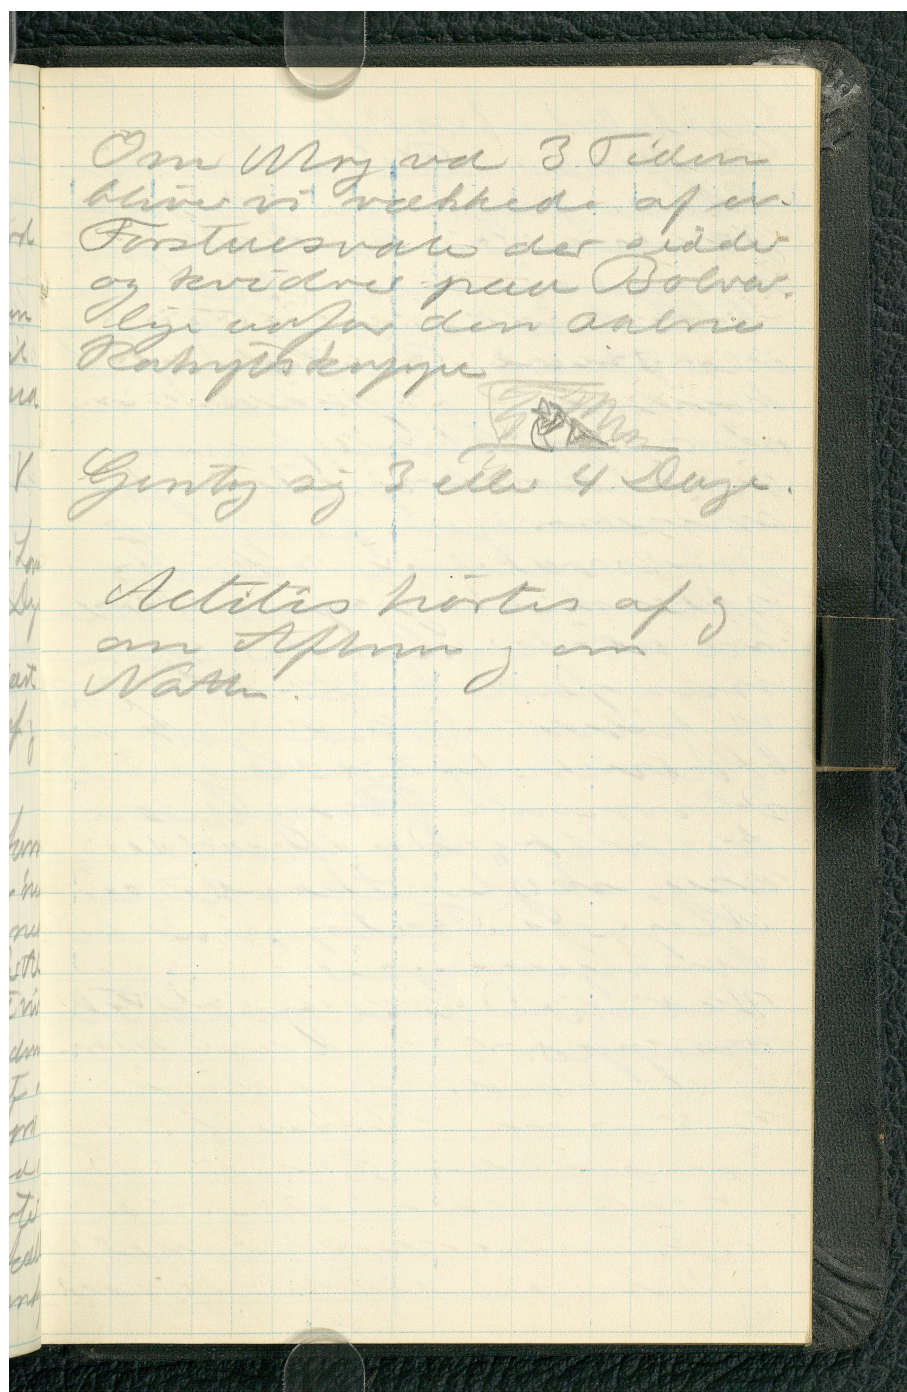 Om Mrg ved 3 Tiden
bliver vi vækkede af en
Forstuesvale der sidder
og kvidrer paa Bolvær.
lige udfor den aabne
Kahytskappe
Gentog sig 3 eller 4 Dage.
Actitis hørtes af og
om Aftnen og om
Natten.